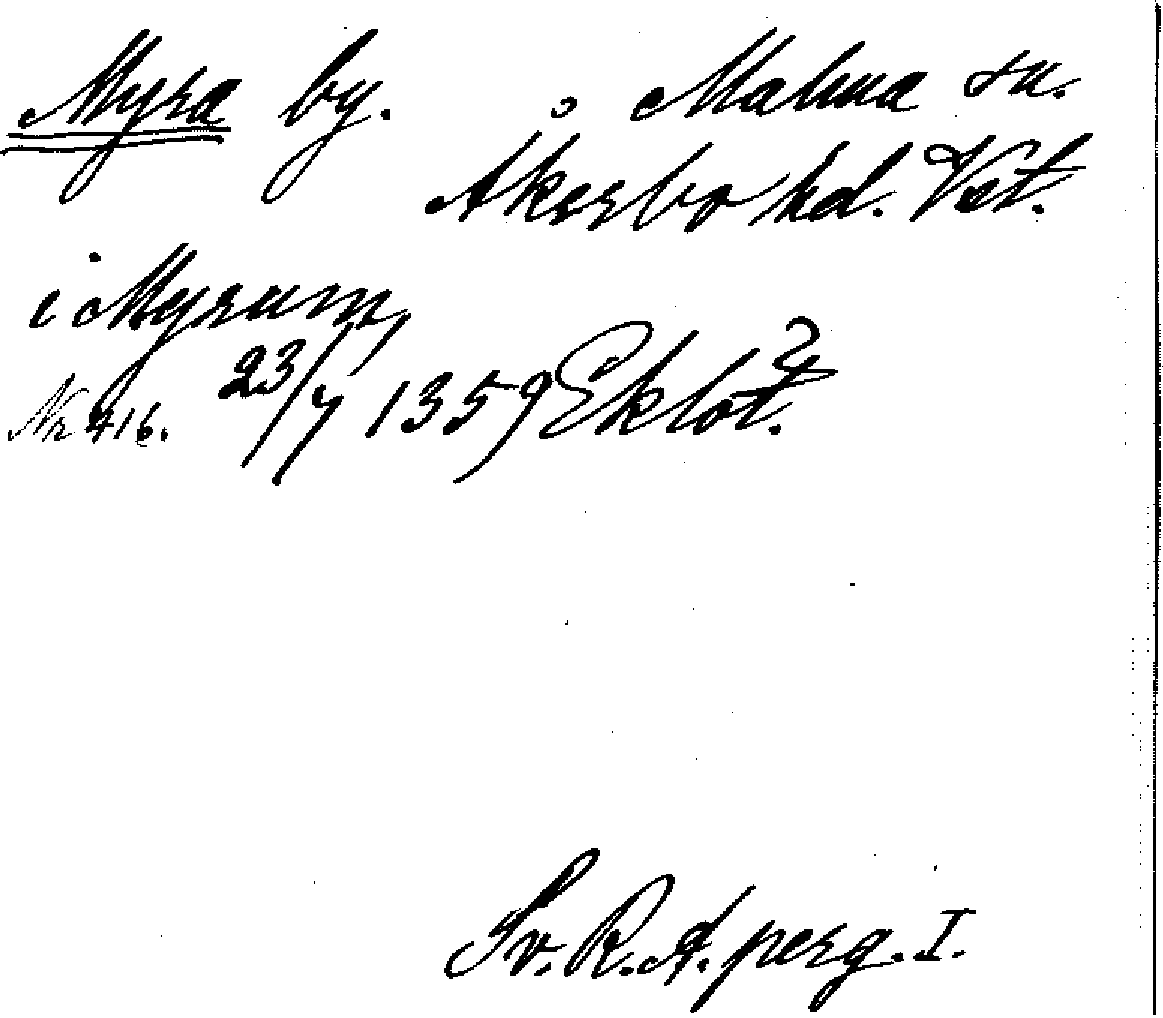 Myra by. Malma sn.
Åkerbo hd. Vst.
i Myrum,
Nr 416. 23/7 1359 Eklöt.
Sv. R. A. perg. I.